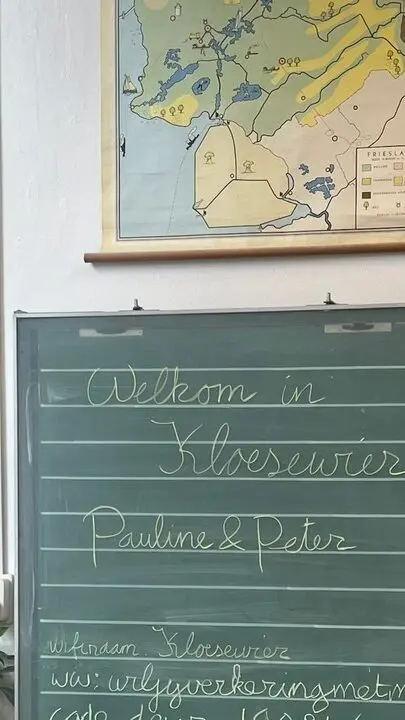 FRIESLA
Welkom in
Kloesewier
Pauline & Peter
wifinaam Kloesewier
ww: wrljyverkeringmetm
code deur